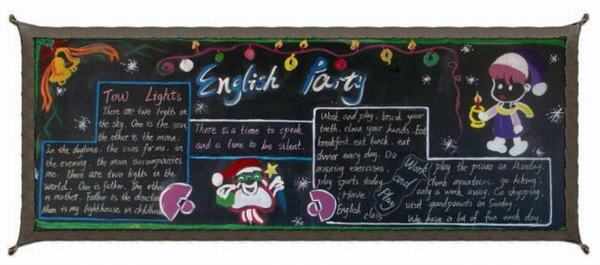 English Party
Tow Lights
There are two lights on
the sky. One is the sun,
the other is the moon.
In the daytime, the sun for me, in
the evening, the moon accompanies
me. There are two lights in the
world. One is father. The other
is mother. Father is the direction
Mom is my lighthouse in childhood
There is a time to speak
and a time to be silent.
Work and play, brush your
teeth, clean your hands. Eat
breakfast, eat lunch, eat
dinner every day. Do
morning exercises,
play sports today
Have
English class
Work
and
Play
play the piano on Sunday,
climb mountains, go hiking
take a walk away. Go shopping,
visit grandparents on Sunday.
We have a lot of fun each day.